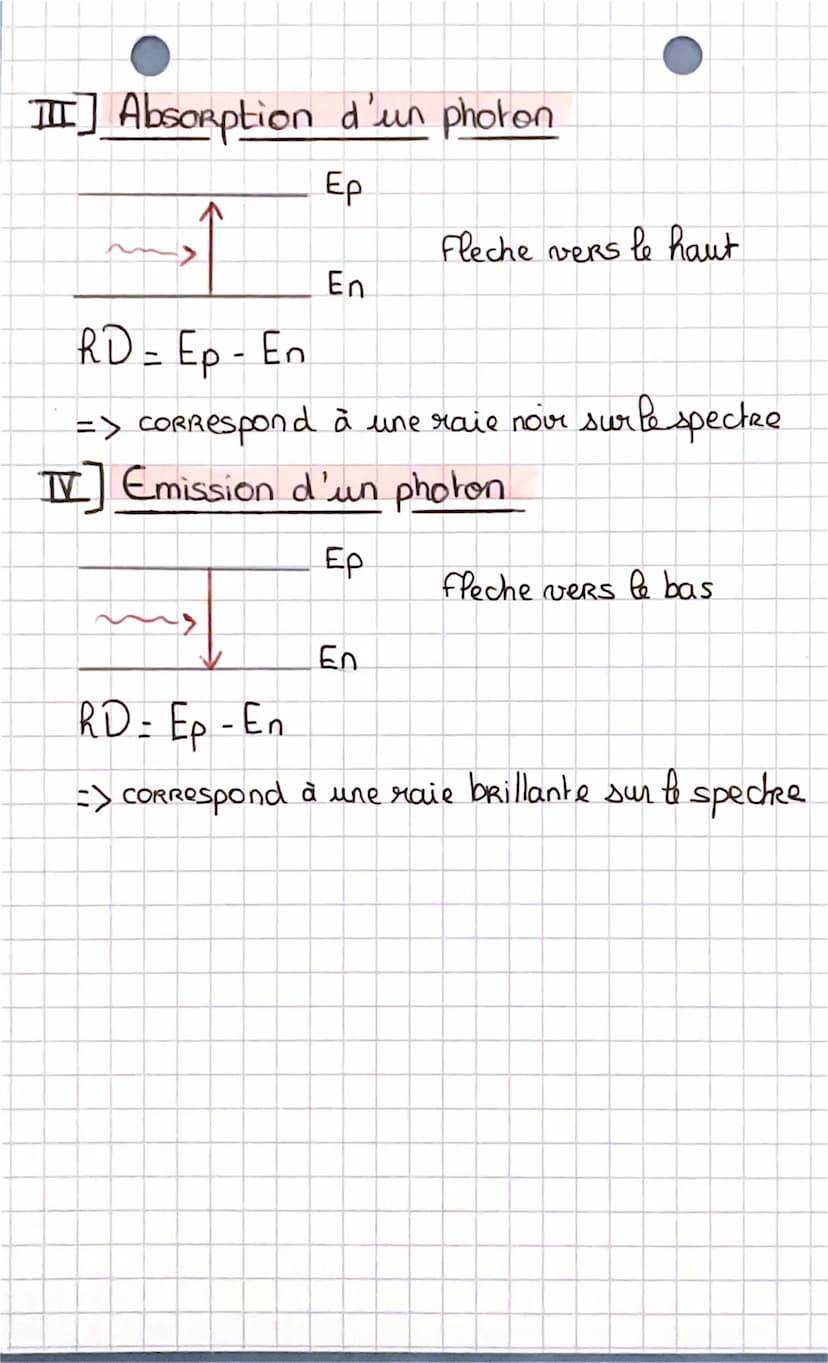 III] Absorption d'un photon
Ep
Fleche vers le haut
En
RD = Ep - En
=> correspond à une raie noir sur le spectre
IV] Emission d'un photon
Ep
fleche vers le bas
En
RD = Ep - En
=> correspond à une raie brillante sur le spectre